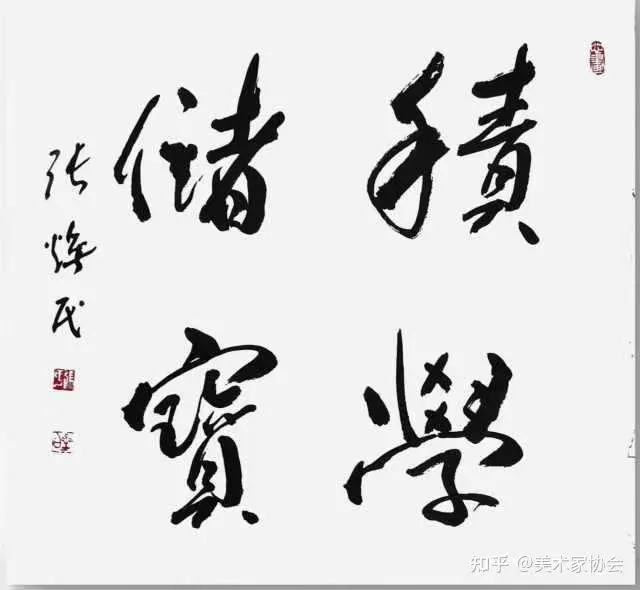 積學
儲寶
张焕民
知乎 @美术家协会